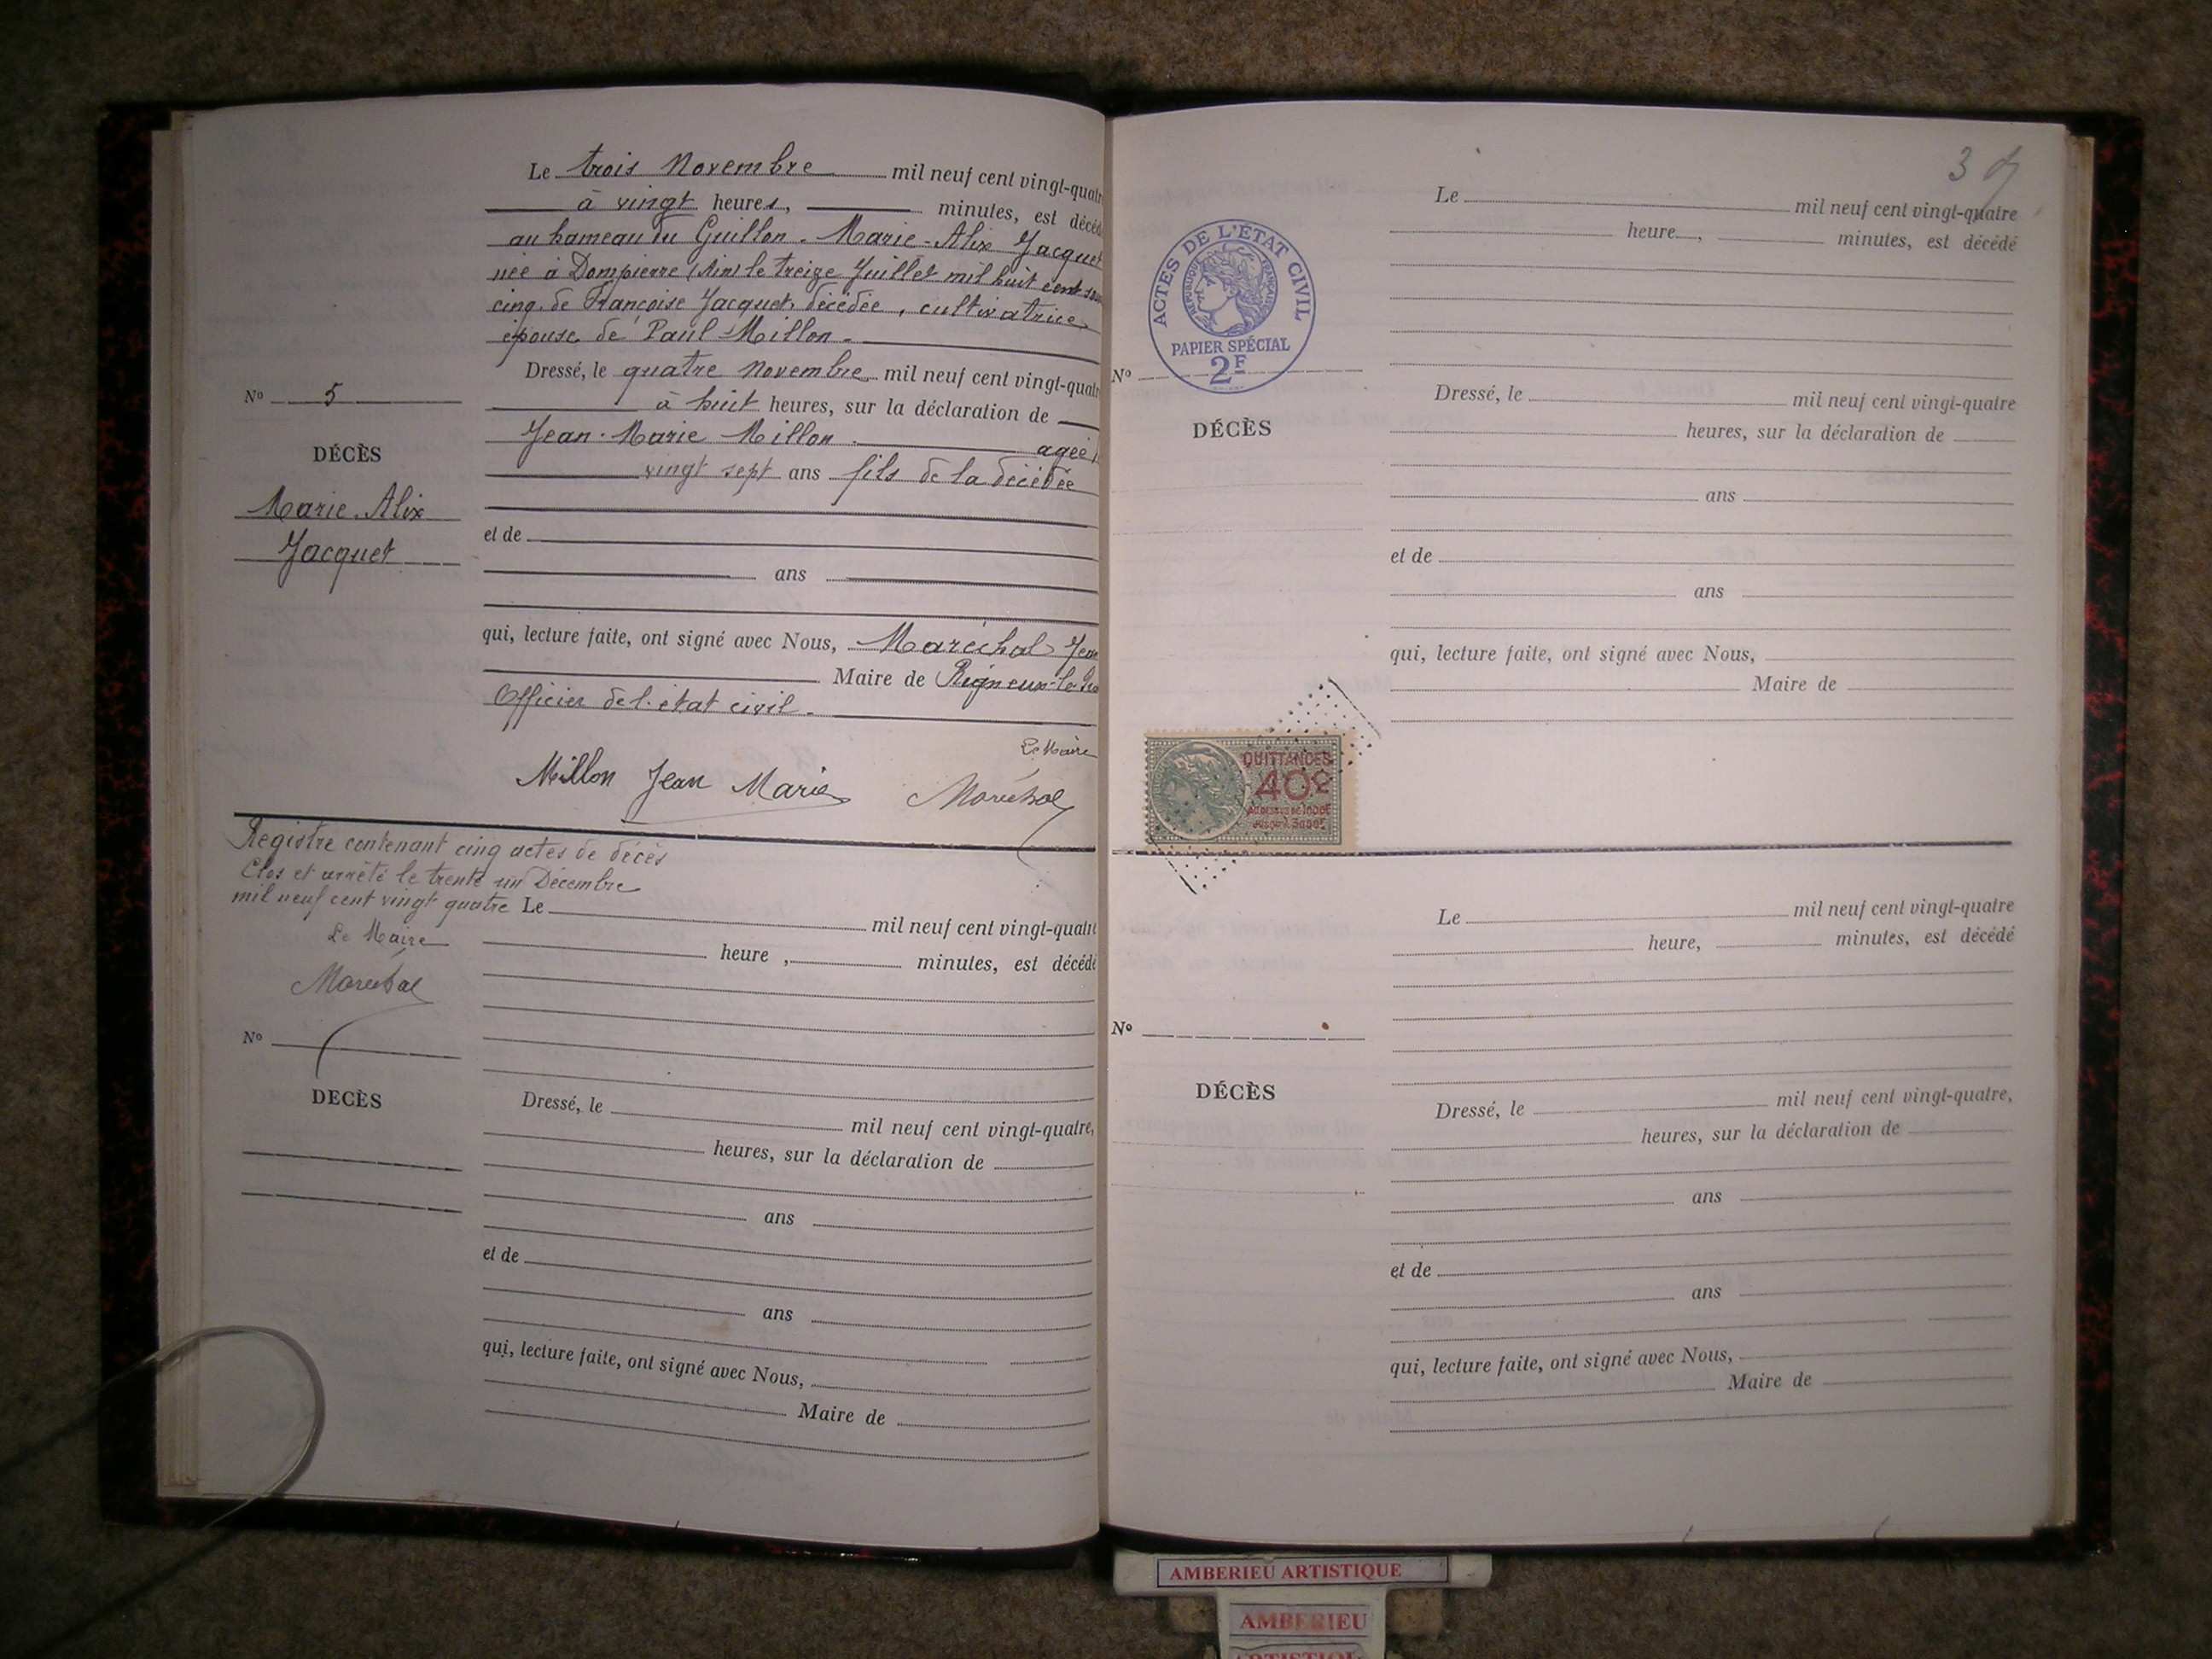 Le trois Novembre mil neuf cent vingt-quatr
à vingt heures, minutes, est décéd
au hameau du Guillon. Marie-Alix Jacquet
née à Dompierre (Ain) le treize Juillet mil huit cent
cinq. de Françoise Jacquet, décédée, cultivatrice,
épouse de Paul Millon.
Dressé, le quatre Novembre mil neuf cent vingt-quatr
à huit heures, sur la déclaration de
Jean-Marie Millon. agée
vingt sept ans fils de la décédée
et de
ans
qui, lecture faite, ont signé avec Nous, Maréchal Jean
Maire de Rigneux-le-
Officier de l'état civil.
Le Maire
Millon Jean Marie Maréchal
No 5
DÉCÈS
Marie-Alix
Jacquet
Registre contenant cinq actes de décès
Clos et arrêté le trente un Décembre
mil neuf cent vingt quatre
Le Maire
Maréchal
Le mil neuf cent vingt-quatre
heure, minutes, est décédé
No
DECÈS
Dressé, le mil neuf cent vingt-quatre,
heures, sur la déclaration de
ans
et de
ans
qui, lecture faite, ont signé avec Nous,
Maire de
3
ACTES DE L'ÉTAT CIVIL
RÉPUBLIQUE FRANÇAISE
PAPIER SPÉCIAL
2F
Le mil neuf cent vingt-quatre
heure, minutes, est décédé
No
DÉCÈS
Dressé, le mil neuf cent vingt-quatre
heures, sur la déclaration de
ans
et de
ans
qui, lecture faite, ont signé avec Nous,
Maire de
QUITTANCES
40c
Le mil neuf cent vingt-quatre
heure, minutes, est décédé
No
DÉCÈS
Dressé, le mil neuf cent vingt-quatre,
heures, sur la déclaration de
ans
et de
ans
qui, lecture faite, ont signé avec Nous,
Maire de
AMBERIEU ARTISTIQUE
AMBERIEU
ARTISTIQUE